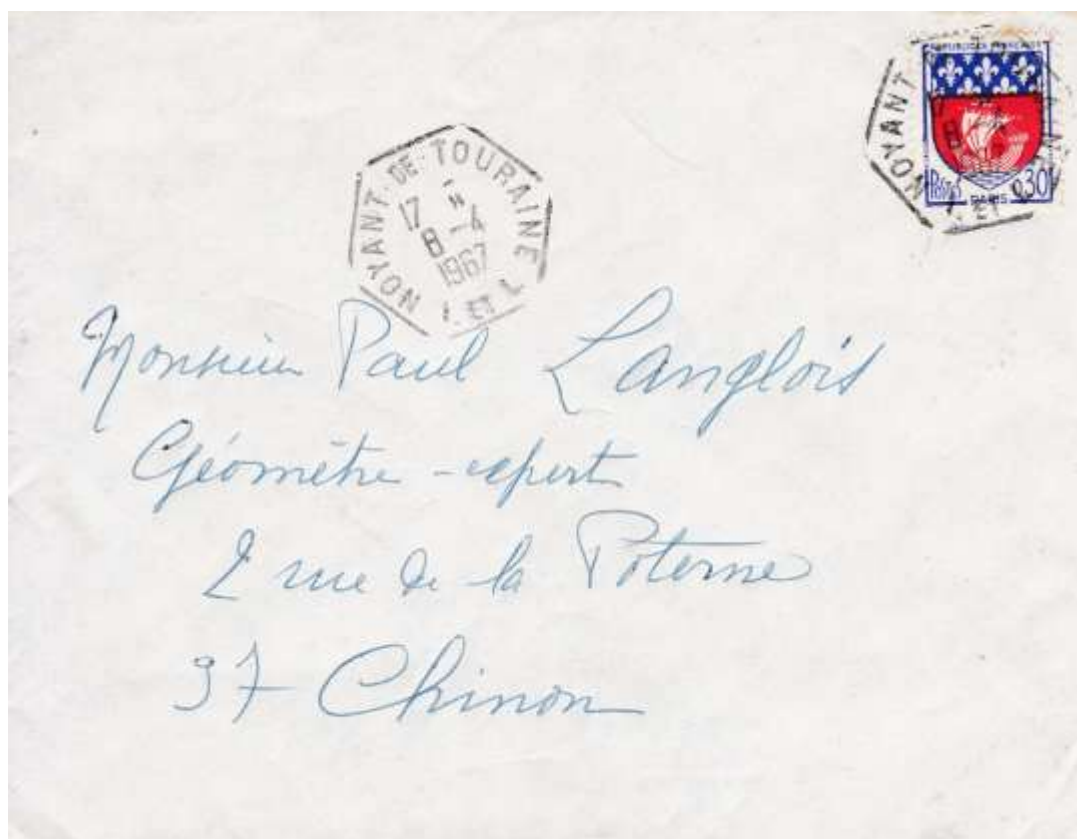 RÉPUBLIQUE FRANÇAISE
Postes 0,30
PARIS
NOYANT I. ET L
8
NOYANT DE TOURAINE
17 H
8 -4
1967
I. ET L
Monsieur Paul Langlois
Géomètre-expert
2 rue de la Poterne
37 Chinon